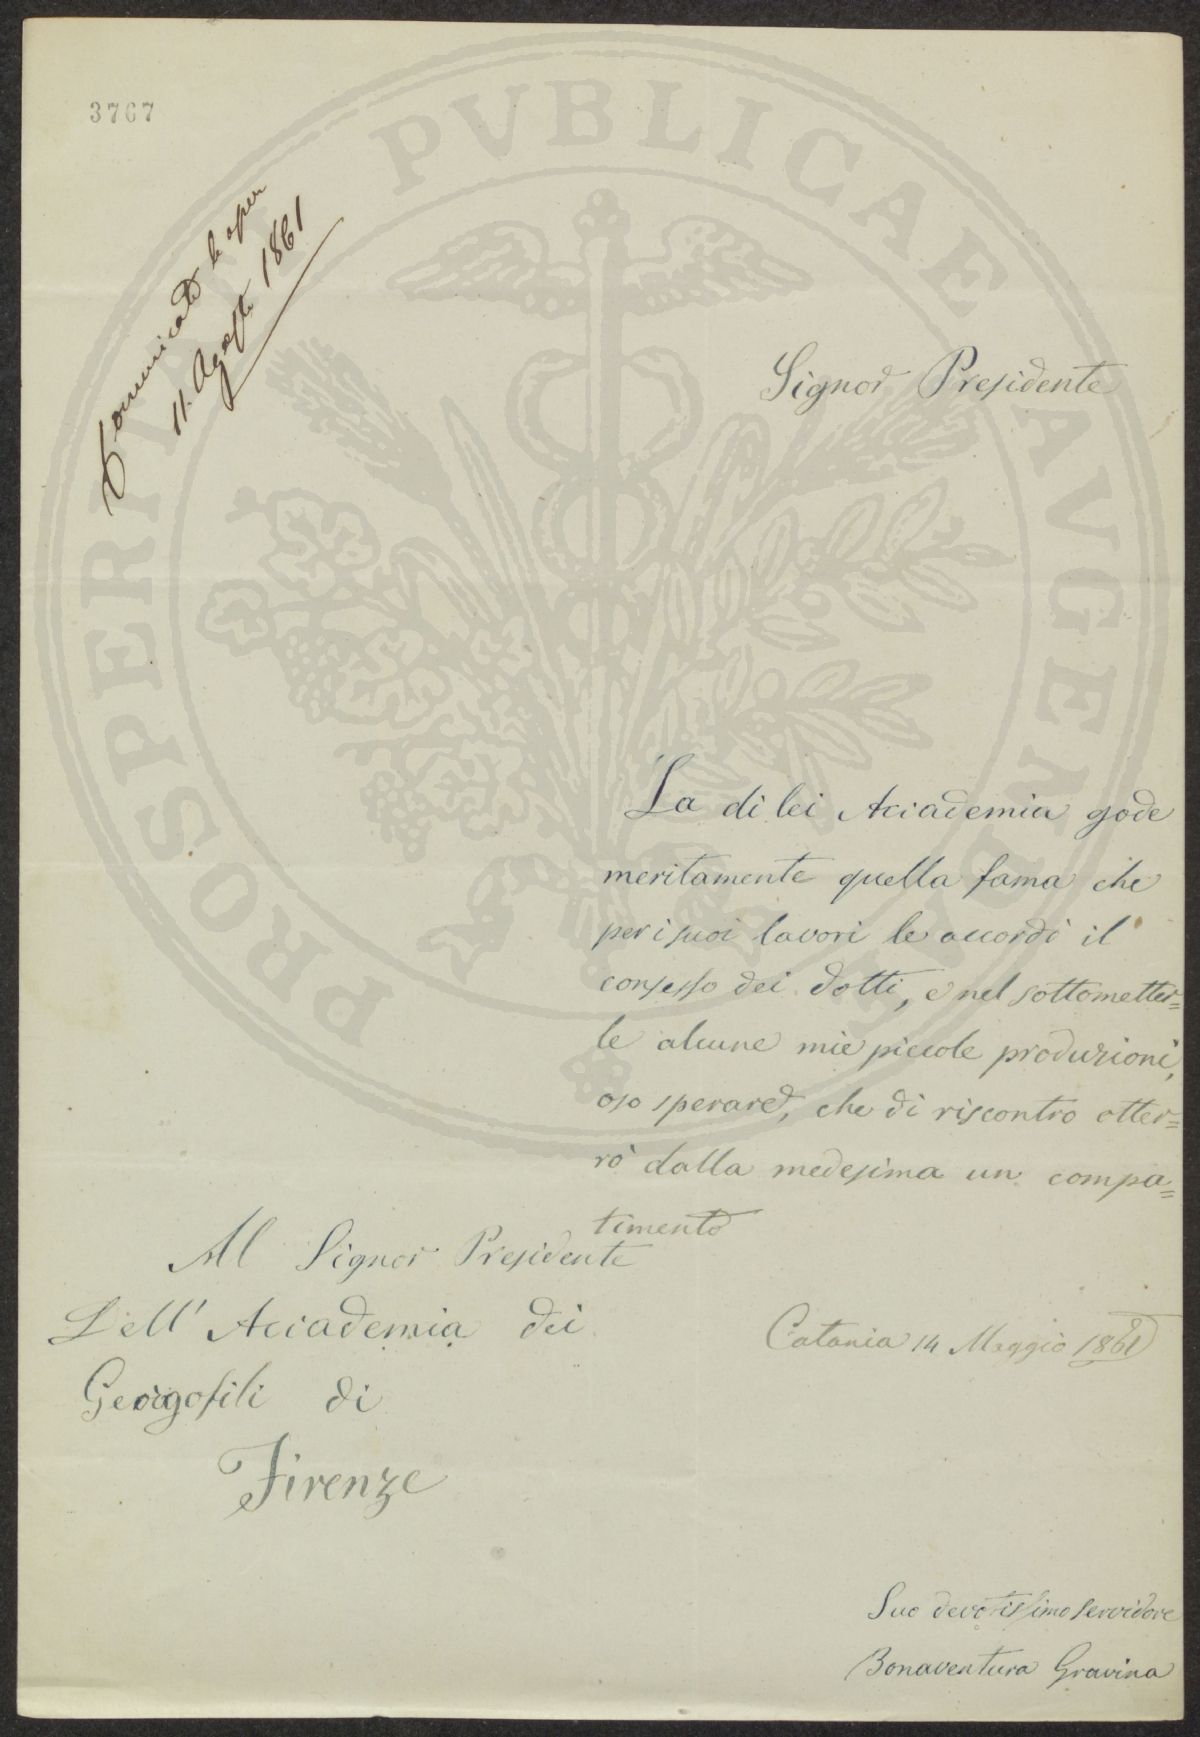 3767
Comunicato le opere
11. Agosto 1861
Signor Presidente
La di lei Accademia gode
meritamente quella fama che
per i suoi lavori le accordò il
consesso dei dotti, e nel sottometter=
le alcune mie piccole produzioni,
oso sperare, che di riscontro otter=
rò dalla medesima un compa=
timento
Al Signor Presidente
Dell' Accademia dei
Georgofili di
Firenze
Catania 14 Maggio 1861
Suo devotissimo servidore
Bonaventura Gravina
PROSPERITATI PVBLICAE AVGENDAE